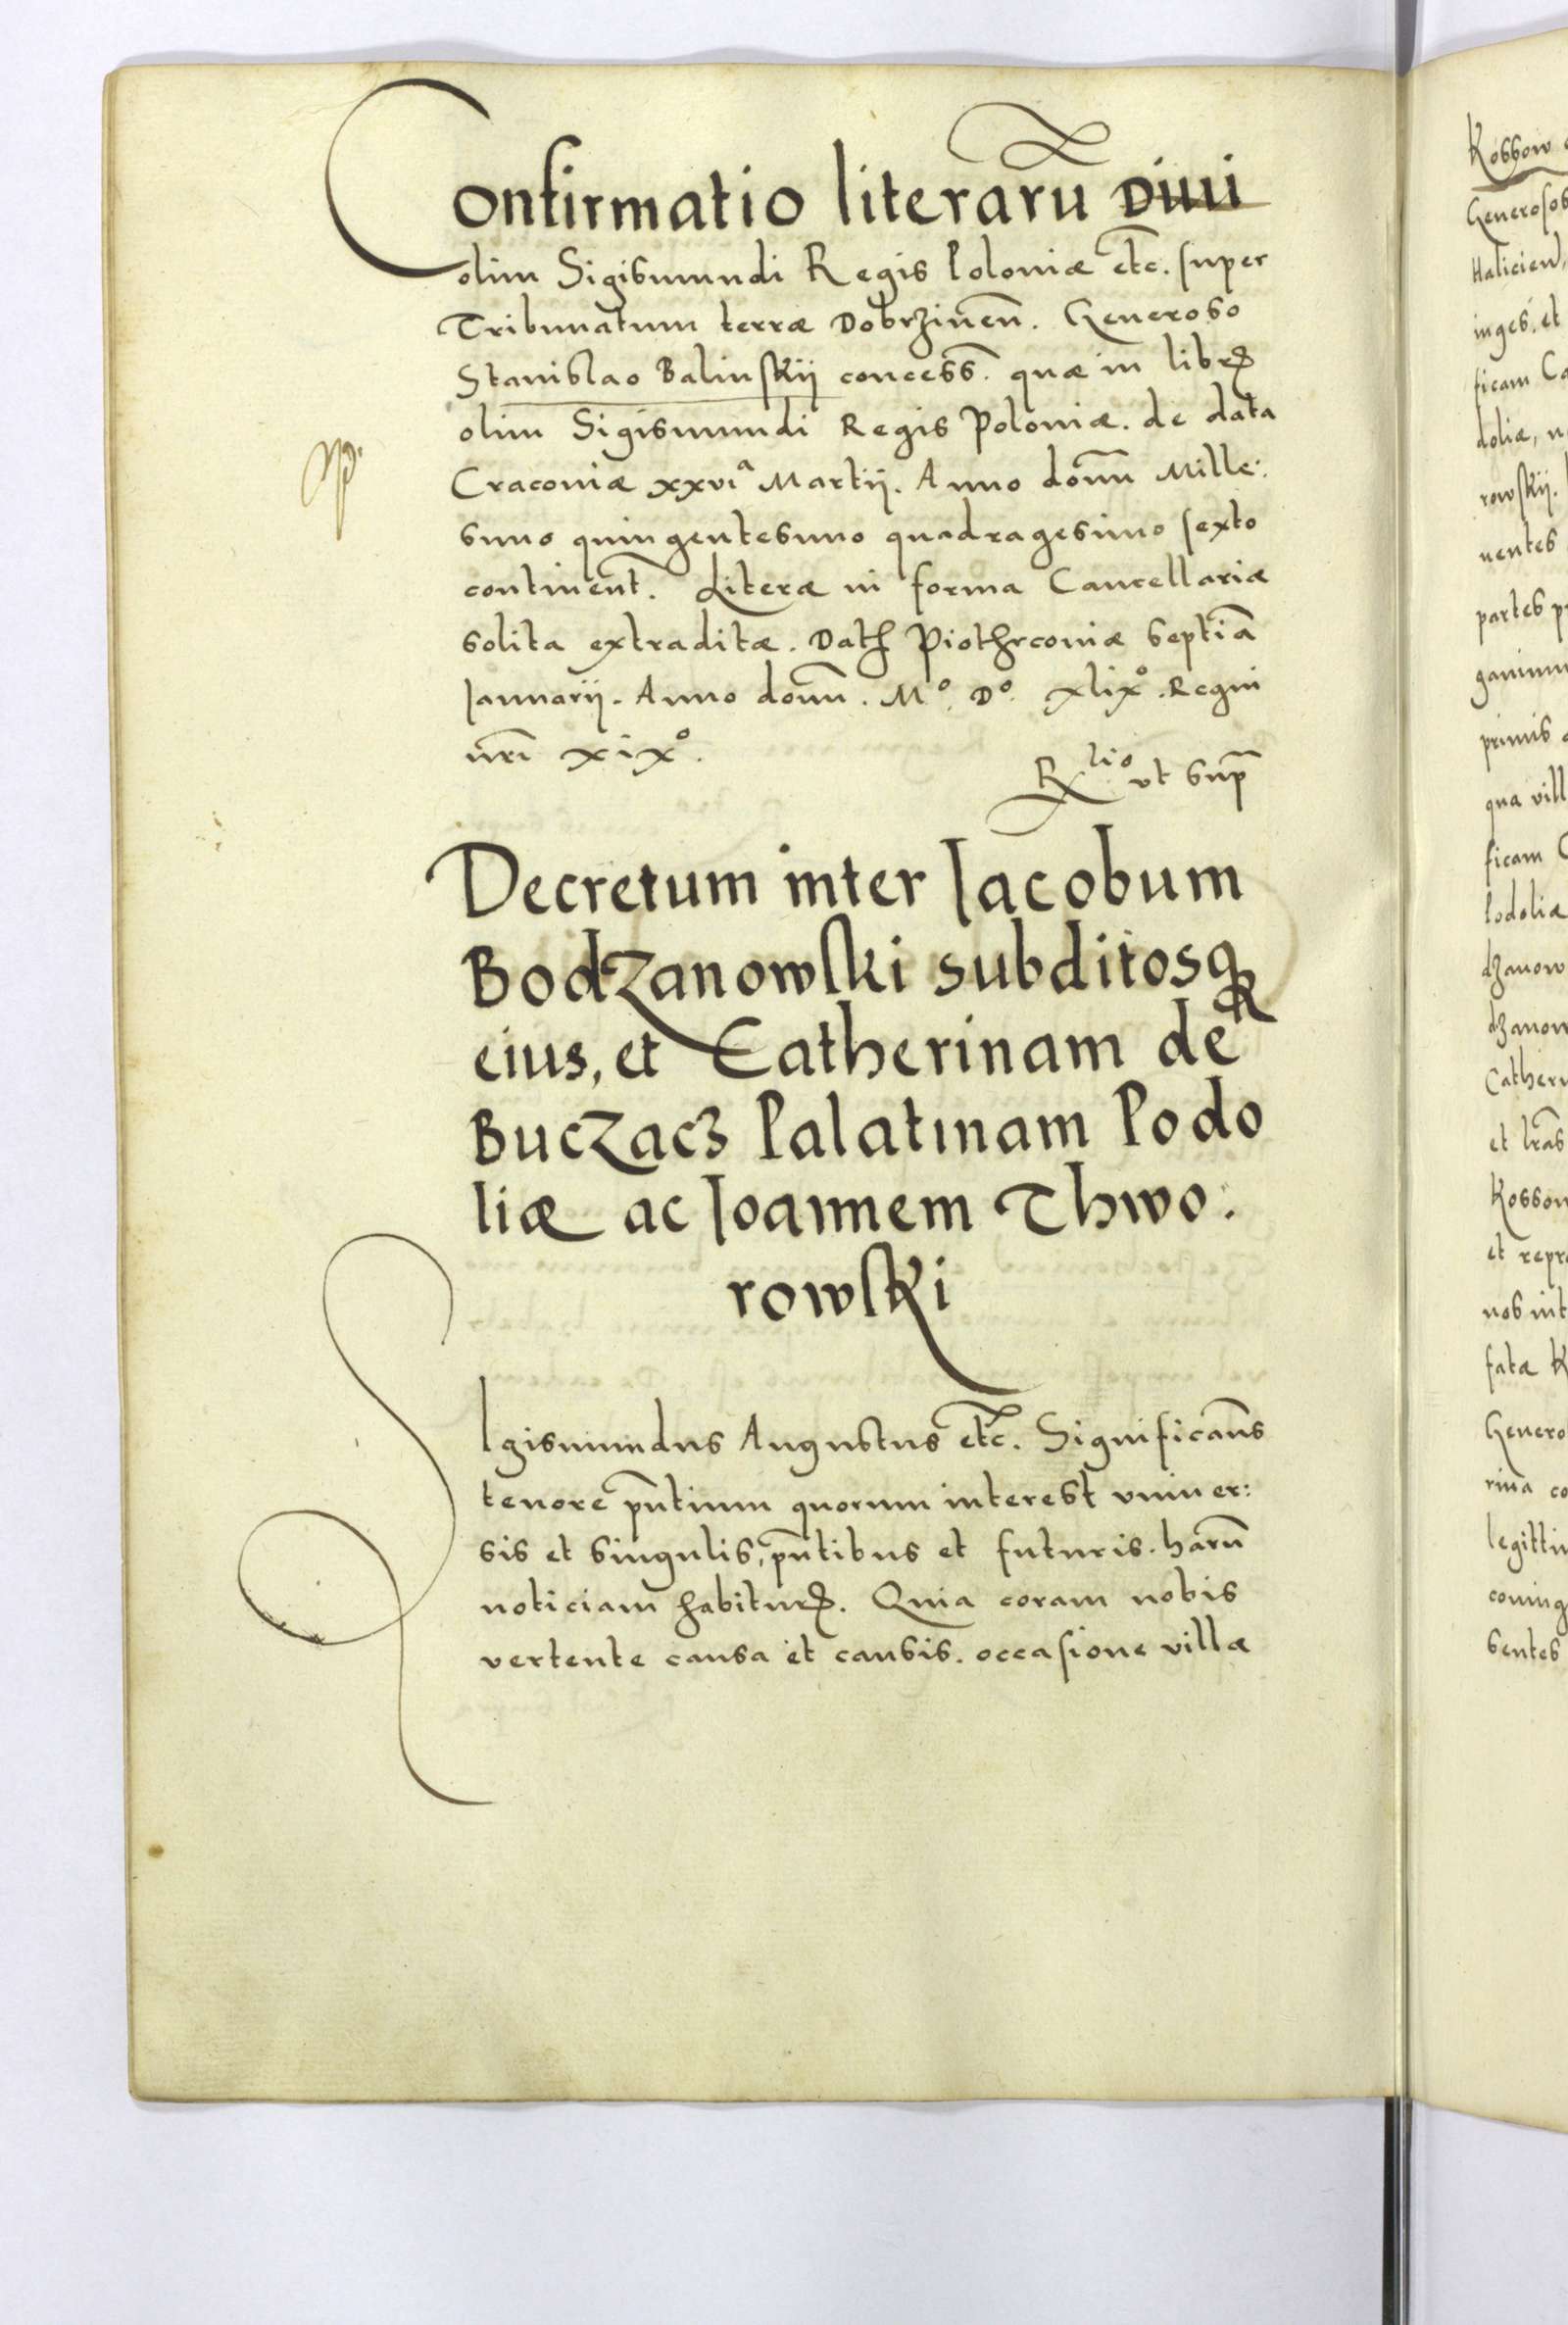 Confirmatio literarū Diui
olim Sigismundi Regis Poloniæ etc̄. super
Tribunatum terræ Dobrzinen̄. Generoso
Stanislao Balinskij concess̄. quæ in libꝝ
olim Sigismundi Regis Poloniæ. de data
Craconiæ xxviᵃ Martij. Anno domn̄ Mille:
simo quingentesimo quadragesimo sexto
continent̄. Literæ in forma Cancellariæ
solita extraditæ. Datꝭ Piothrconiæ septiā
Ianuarij. Anno domn̄. Mº. Dº. xlixº. Regni
nr̄i xixº.
Rˡⁱᵒ vt sup̄
Decretum inter Iacobum
Bodzanowski subditosqꝫ
eius, et Catherinam de
Buczacz Palatinam Podo
liæ ac Ioannem Thwo:
rowski
SIgismundus Augustus etc̄. Significam̄s
tenore pn̄tium quorum interest vniuer:
sis et singulis, pn̄tibus et futuris. harū
noticiam habiturꝭ. Quia coram nobis
vertente causa et causis. occasione villæ
Kossow
Generosos
Halicien̄,
inges. et
ficam Ca
doliæ, n
rowskij.
uentes
partes p
ganimu
primis
qua vill
ficam C
Podoliæ
dzanow
dzanow
Catheri
et lr̄as
Kossow
et repr
nos int
fatæ K
Genero
rina co
legittim
coniug
sentes